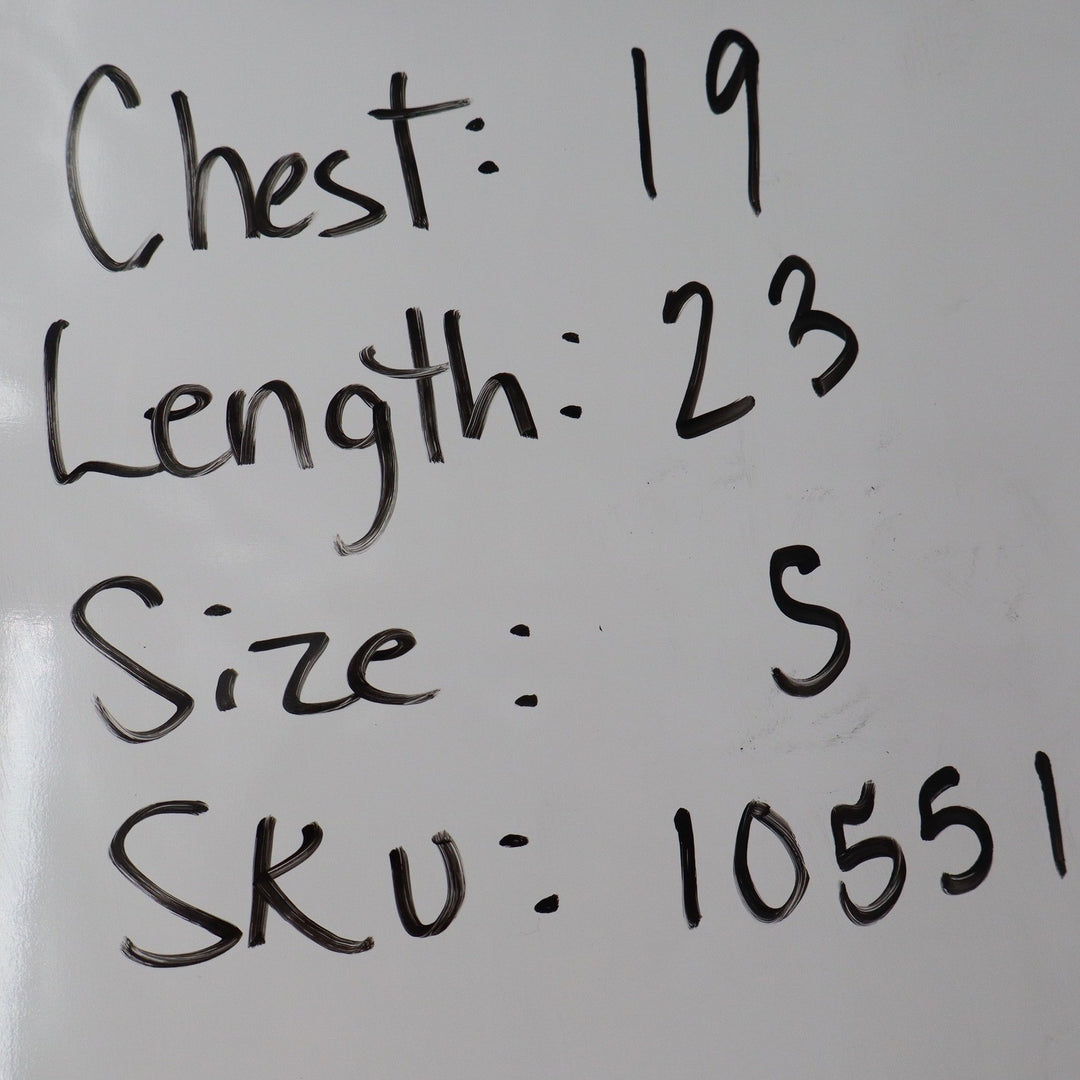 Chest: 19
Length: 23
Size: S
SKU: 10551